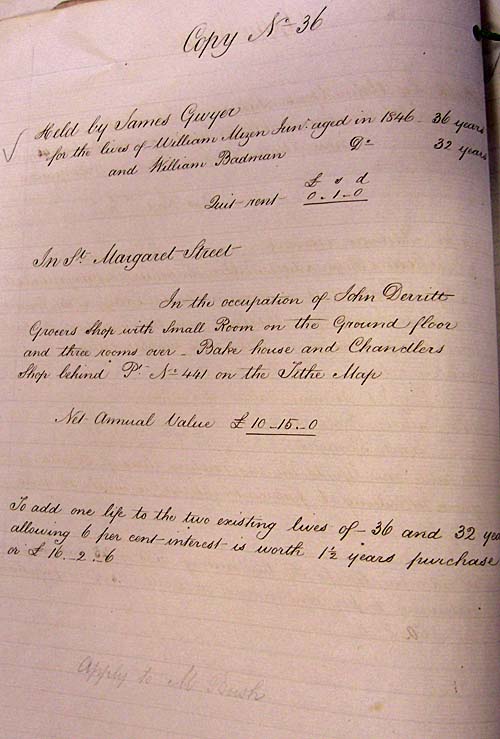 Copy No 36
Held by James Gwyer
for the lives of William Mizen Junr. aged in 1846 - 36 years
and William Badman Do 32 years
£ s d
Quit rent 0.-1.-0
In St. Margaret Street
In the occupation of John Derritt
Grocers Shop with Small Room on the Ground floor
and three rooms over - Bake house and Chandlers
Shop behind Pt. No 441 on the Tithe Map
Net Annual Value £10.-15.-0
To add one life to the two existing lives of - 36 and 32 yea
allowing 6 per cent interest is worth 1½ years purchase
or £16.-2.-6
Apply to Mr Bush